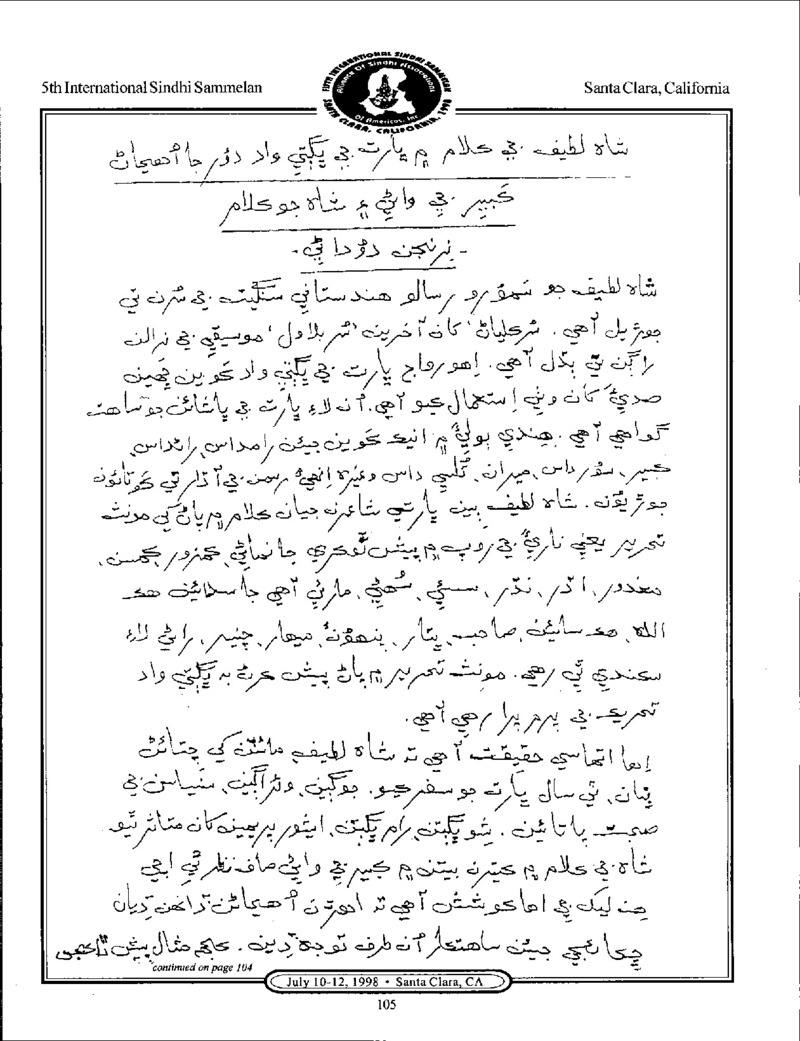 5th International Sindhi Sammelan
FIFTH INTERNATIONAL SINDHI SAMMELAN
Alliance Of Sindhi Associations Of Americas, Inc.
SANTA CLARA, CALIFORNIA, 1998
Santa Clara, California
شاھ لطيف جي ڪلام ۾ ڀارت جي ڀڳتي واد دؤر جا اُهڃاڻ
ڪَبير جي واڻي ۽ شاھ جو ڪلام
- نِرنجن دؤداڻي -
شاھ لطيف جو سَمؤرو رسالو هندستاني سنگيت جي سُرن تي
جوڙيل آهي. سُرڪلياڻ کان آخرين 'سُر بلاول' موسيقيءَ جي نرالن
راڳن تي ٻڌل آهي. اِهو رواج ڀارت جي ڀڳتي واد ڪَوين ڇهين
صديءَ کان وٺي اِستعمال ڪيو آهي. اُن لاءِ ڀارت جي ڀاشائن جو ساهت
گواهي آهي. هِندي ٻوليءَ ۾ انيڪ ڪَوين جيئن رامداس،
ڪبير، سؤرداس، ميران، تُلسي داس وغيره اِنهيءَ رسمن جي آڌار تي ڪَوِتائون
جوڙيون. شاھ لطيف ٻين ڀارتي شاعرن جيان ڪلام ۾ پاڻ کي مونث
تحرير يعني ناريءَ جي روپ ۾ پيش ڪري جا نماڻي، ڪمزور،
معذور، سسئي، سُهڻي، مارئي آهي جا سدائين هڪ
الله، هڪ سائين، صاحب، پتار، پنهونءَ، ميهار، چنيسر، راڻي لاءِ
سڪندي ٿي رهي. مونث تحرير ۾ پاڻ پيش ڪرڻ به ڀڳتي واد
تحريڪ جي پرمپرا رهي آهي.
اِها اتهاسي حقيقت آهي ته شاھ لطيف مائٽن کي ڇڏائڻ
پُڄاڻ، ٽي سال ڀارت جو سفر ڪيو. جوڳين، ويراڳين، سنياسن جي
صحبت پاتائين. شِو ڀڳتن، رام ڀڳتن، ايشور پريمين کان متاثر ٿيو
شاھ جي ڪلام ۾ ڪيترن بيتن ۾ ڪبير جي واڻي صاف نظر ٿي اچي
هِن ليک جي اها ڪوشش آهي ته اهڙن اُهڃاڻن ڏانهن ڌيان
ڇڪائجي جيئن ساهتڪار اُن طرف توجهه ڏين. ڪجهه مثال پيش ٿا ڪجن
continued on page 104
July 10-12, 1998 • Santa Clara, CA
105